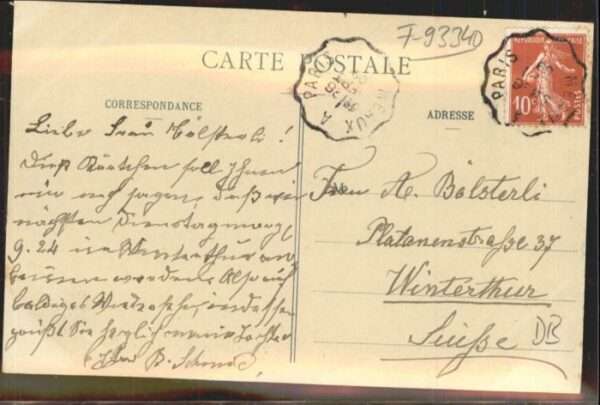 F-93340
CARTE POSTALE
CORRESPONDANCE
ADRESSE
REPUBLIQUE FRANÇAISE
10
POSTES
MEAUX A PARIS
PARIS
Liebe Frau Bölsterli!
Dieß Kärtchen soll Ihnen
nur noch sagen, daß wir
nächsten Dienstag morg.
9.24 in Winterthur an
kommen werden. Also auf
baldiges Wiedersehen, indessen
grüßt Sie herzlich meine Tochter
Ihre B.
Frau A. Bölsterli
Platanenstraße 37
Winterthur
Suisse
DB